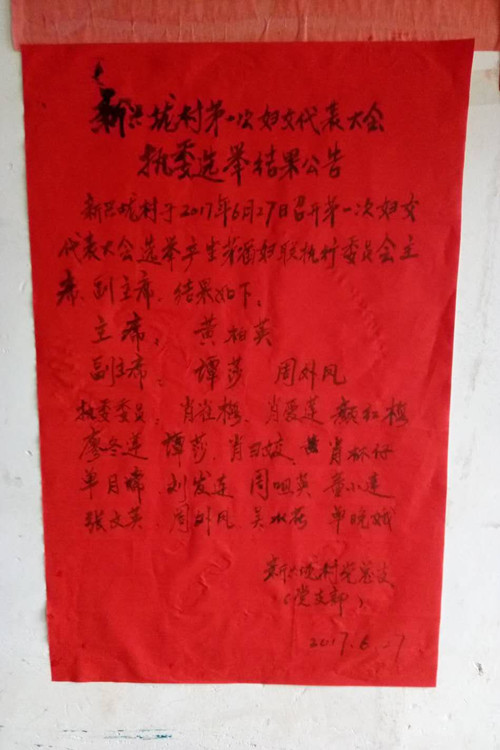 新兴坑村第一次妇女代表大会
执委选举结果公告
新兴坑村于2017年6月27日召开第一次妇女
代表大会选举产生第一届妇联执行委员会主
席、副主席,结果如下:
主席: 黄柏英
副主席: 谭莎 周外风
执委委员: 肖雀梅、肖爱莲 颜红梅
廖冬莲 谭莎、肖 肖
单月 刘发连 周 英 董小连
张文英、周外风 吴水 单晚娥
新兴坑村党总支
(党支部)
2017.6.27